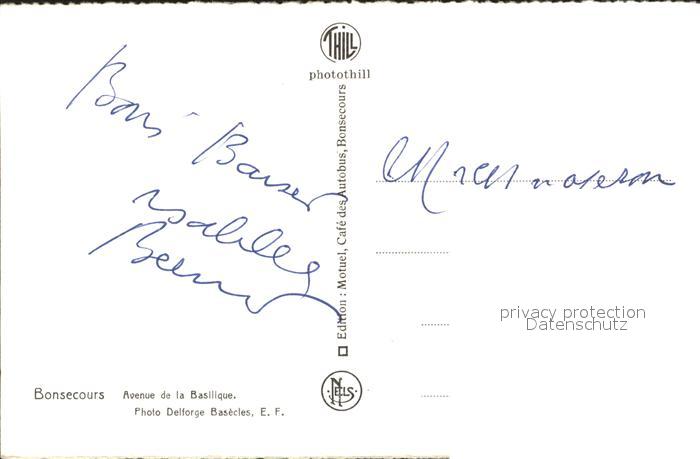 THILL
photothill
Bons Baiser
Edition : Motuel, Café des Autobus, Bonsecours
NELS
Bonsecours Avenue de la Basilique.
Photo Delforge Basècles, E. F.
privacy protection
Datenschutz